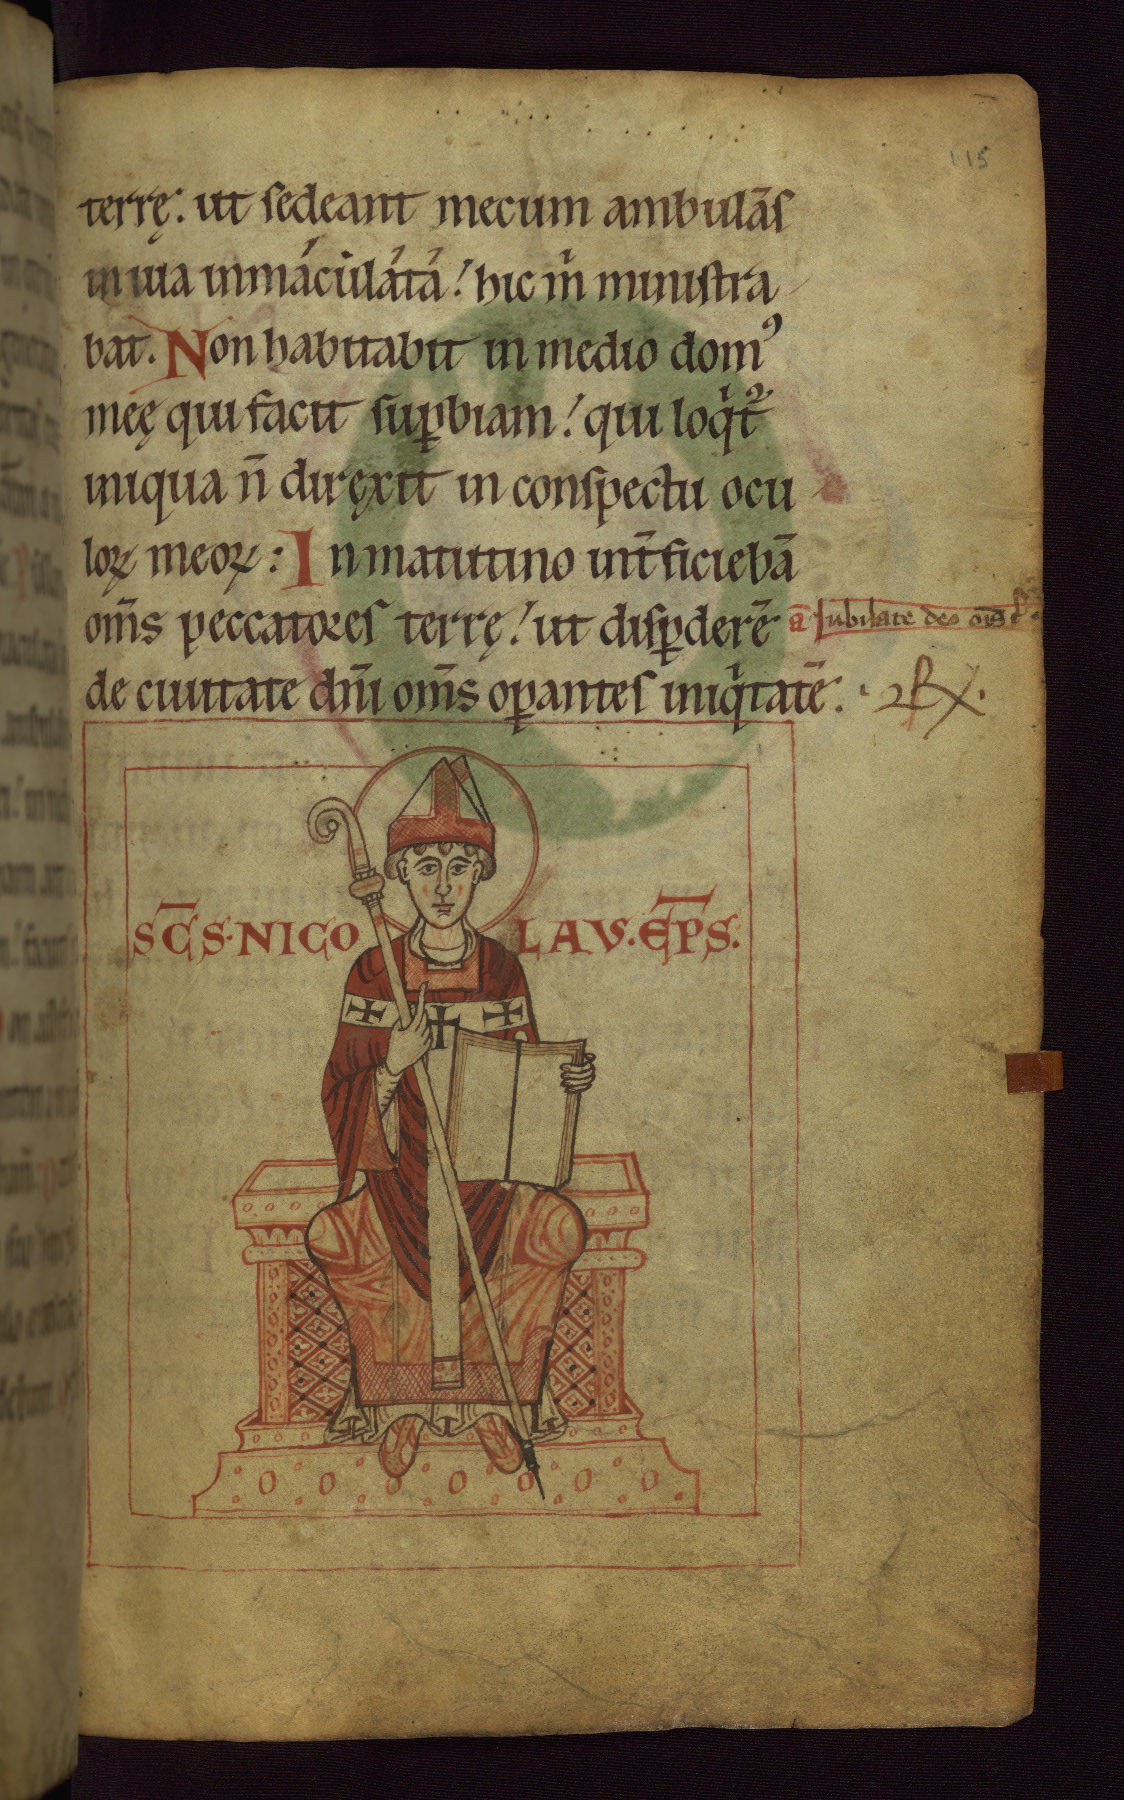 115
terrę. ut sedeant mecum ambulās
in uia inmaculata! hic m̄ ministra
bat. Non habitabit in medio domꝰ
meę qui facit suꝑbiam! qui loq̇t᷑
iniqua n̄ diręxit in conspectu ocu
loꝝ meoꝝ: In matutino int̄ficiebā
om̄s peccatores terrę! ut disꝑderē
ā Iubilate deo
de ciuitate dn̄i om̄s oꝑantes iniq̇tatē.
SC̄S·NICO LAVS·EP̄S.